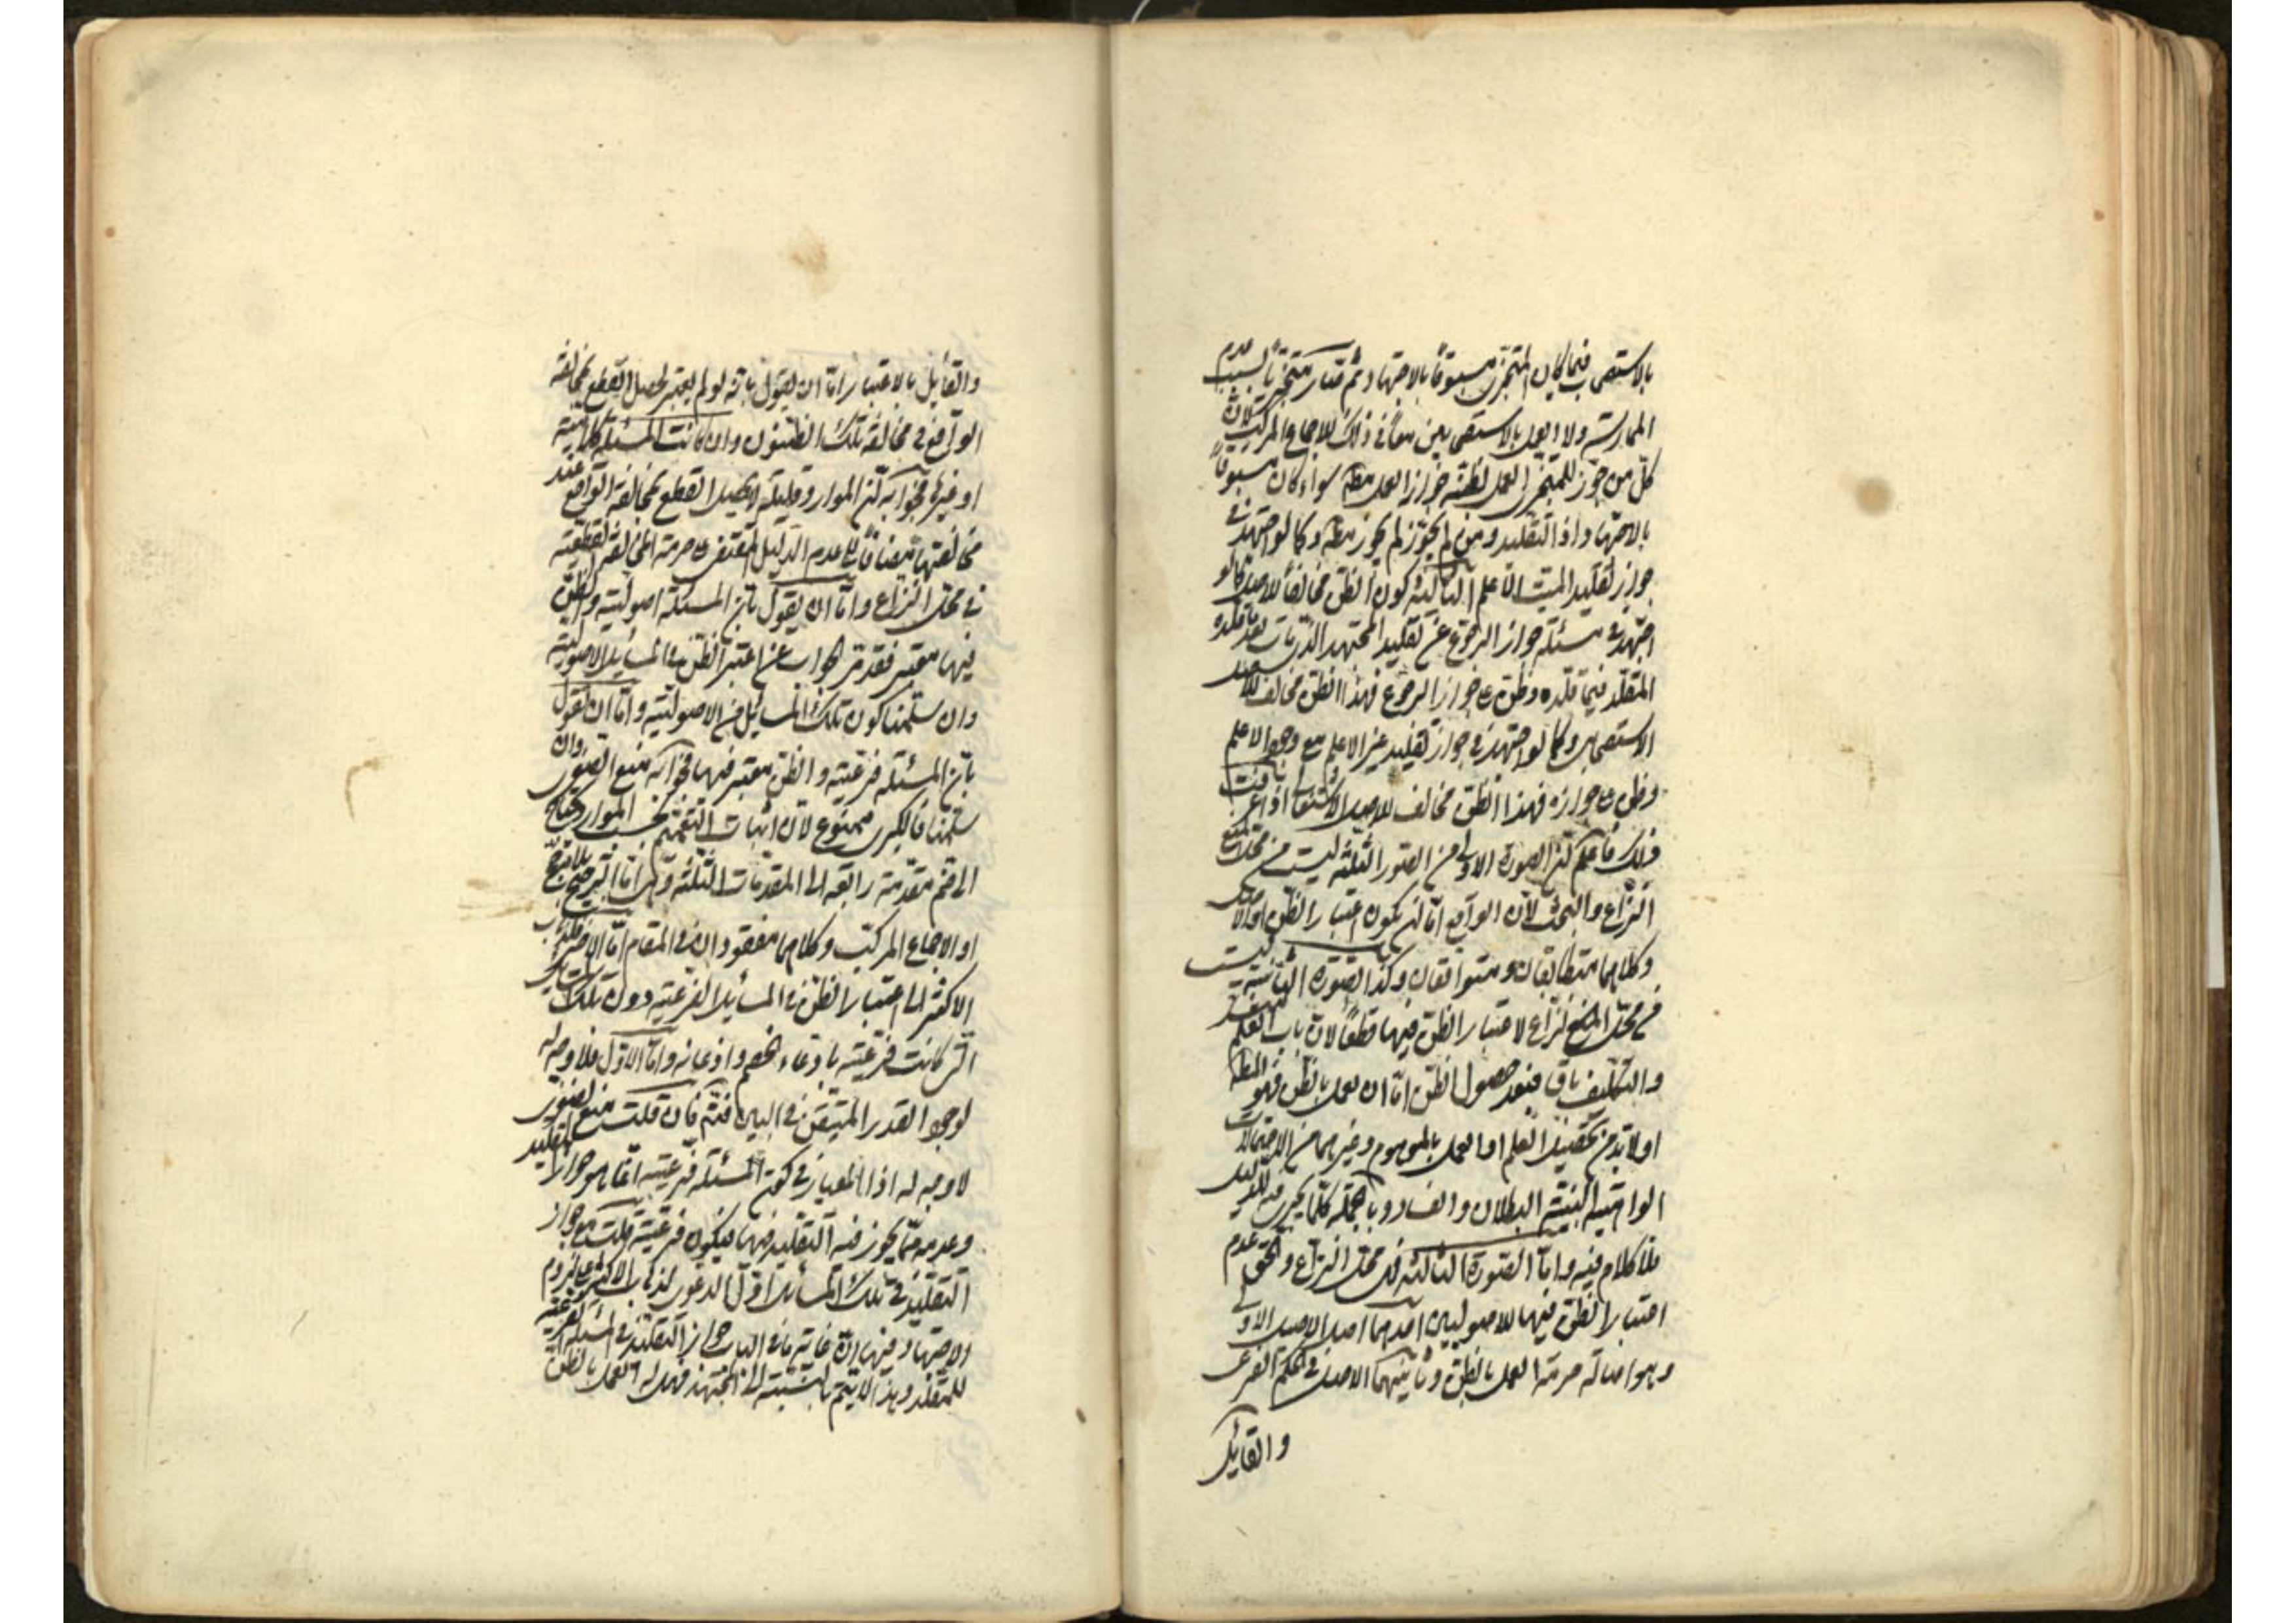 بالاستصحاب فيما كان المتجزى مسبوقاً بالاجتهاد ثم صار متجزياً بسبب عدم
الممارسة ولا يعمل بالاستصحابين معاً في ذلك للاجماع المركب لان
كل من جوز للمتجزى العمل بظنه جوز العمل مطلقا سواء كان مسبوقاً
بالاجتهاد او التقليد ومن لم يجوز لم يجوز مطلقا وكما لو اجتهد في
جواز تقليد الميت الاعلم الثالثة كون الظن مخالفاً للاصل كما لو
اجتهد في مسئلة جواز الرجوع عن تقليد المجتهد الذى بعد قلده
المقلد فيما قلده وظن بجواز الرجوع فهذا الظن مخالف لاصل
الاستصحاب وكما لو اجتهد في جواز تقليد غير الاعلم مع وجود الاعلم
وظن بجوازه فهذا الظن مخالف للاصل الاشتغال اذا عرفت
ذلك فاعلم ان الصورة الاولى من الصور الثلثة ليست من محل
النزاع والبحث لان الواقع اما ان يكون اعتبار الظن او الاصل
وكلاهما متطابقان ومتوافقان وكذا الصورة الثانية ليست
من محل النزاع لاعتبار الظن فيها قطعاً لان باب العلم منسد
والتكليف باق فبعد حصول الظن اما ان يعمل بالظن فهو المطلوب
او لا بد من تحصيل العلم او العمل بالموهوم وغيرهما من الاحتمالات
الواهية البينة البطلان والفساد وبالجملة كلما يجرى فيه
فلا كلام فيه واما الصورة الثالثة فهى محل النزاع والحق عدم
اعتبار الظن فيها للاصولين احدهما اصل الاصل الاولى
وهو اصالة حرمة العمل بالظن وثانيهما الاصل في الحكم الفرعى
والقايل
والقايل بالاعتبار اما ان يقول بانه لو لم يعتبر لحصل القطع بمخالفة
الواقع في مخالفة تلك الظنون وان كانت المسئلة كلامية
او غيرها فجوابه ان الموارد قليلة لا يحصل القطع بمخالفة الواقع عند
مخالفتها مضافاً الى عدم الدليل المقتضى حرمة المخالفة القطعية
في محل النزاع واما ان يقول بان المسئلة اصولية والظن
فيها معتبر فقد مر الجواب عن اعتبار الظن في المسائل الاصولية
وان سلمنا كون تلك المسائل من الاصولية واما ان يقول
بان المسئلة فرعية والظن معتبر فيها فجوابه منع الصغرى وان
سلمنا فالكبرى ممنوع لان اثبات التعميم بحسب الموارد يحتاج
الى ضم مقدمة رابعة الى المقدمات الثلثة وهى اما الترجيح بلا مرجح
او الاجماع المركب وكلاهما مفقودان في المقام اما الاخير فلذهاب
الاكثر الى اعتبار الظن في المسائل الفرعية دون تلك المسائل
التى كانت فرعية بادعاء الخصم واذعانه واما الاول فلا وجه له
لوجود القدر المتيقن في البين فتم فان قلت منع الصغرى
لا وجه له اذ المعيار في كون المسئلة فرعية انما هو جواز التقليد
وعدمه مما يجوز فيه التقليد فيها فيكون فرعية قلت جواز
التقليد في تلك المسائل اول الدعوى لذهاب الاكثر الى لزوم
الاجتهاد فيها ان غاية ما في الباب جواز التقليد في المسئلة الفرعية
للمقلد وهذا لا يتم بالنسبة الى المجتهد فهل له العمل بالظن